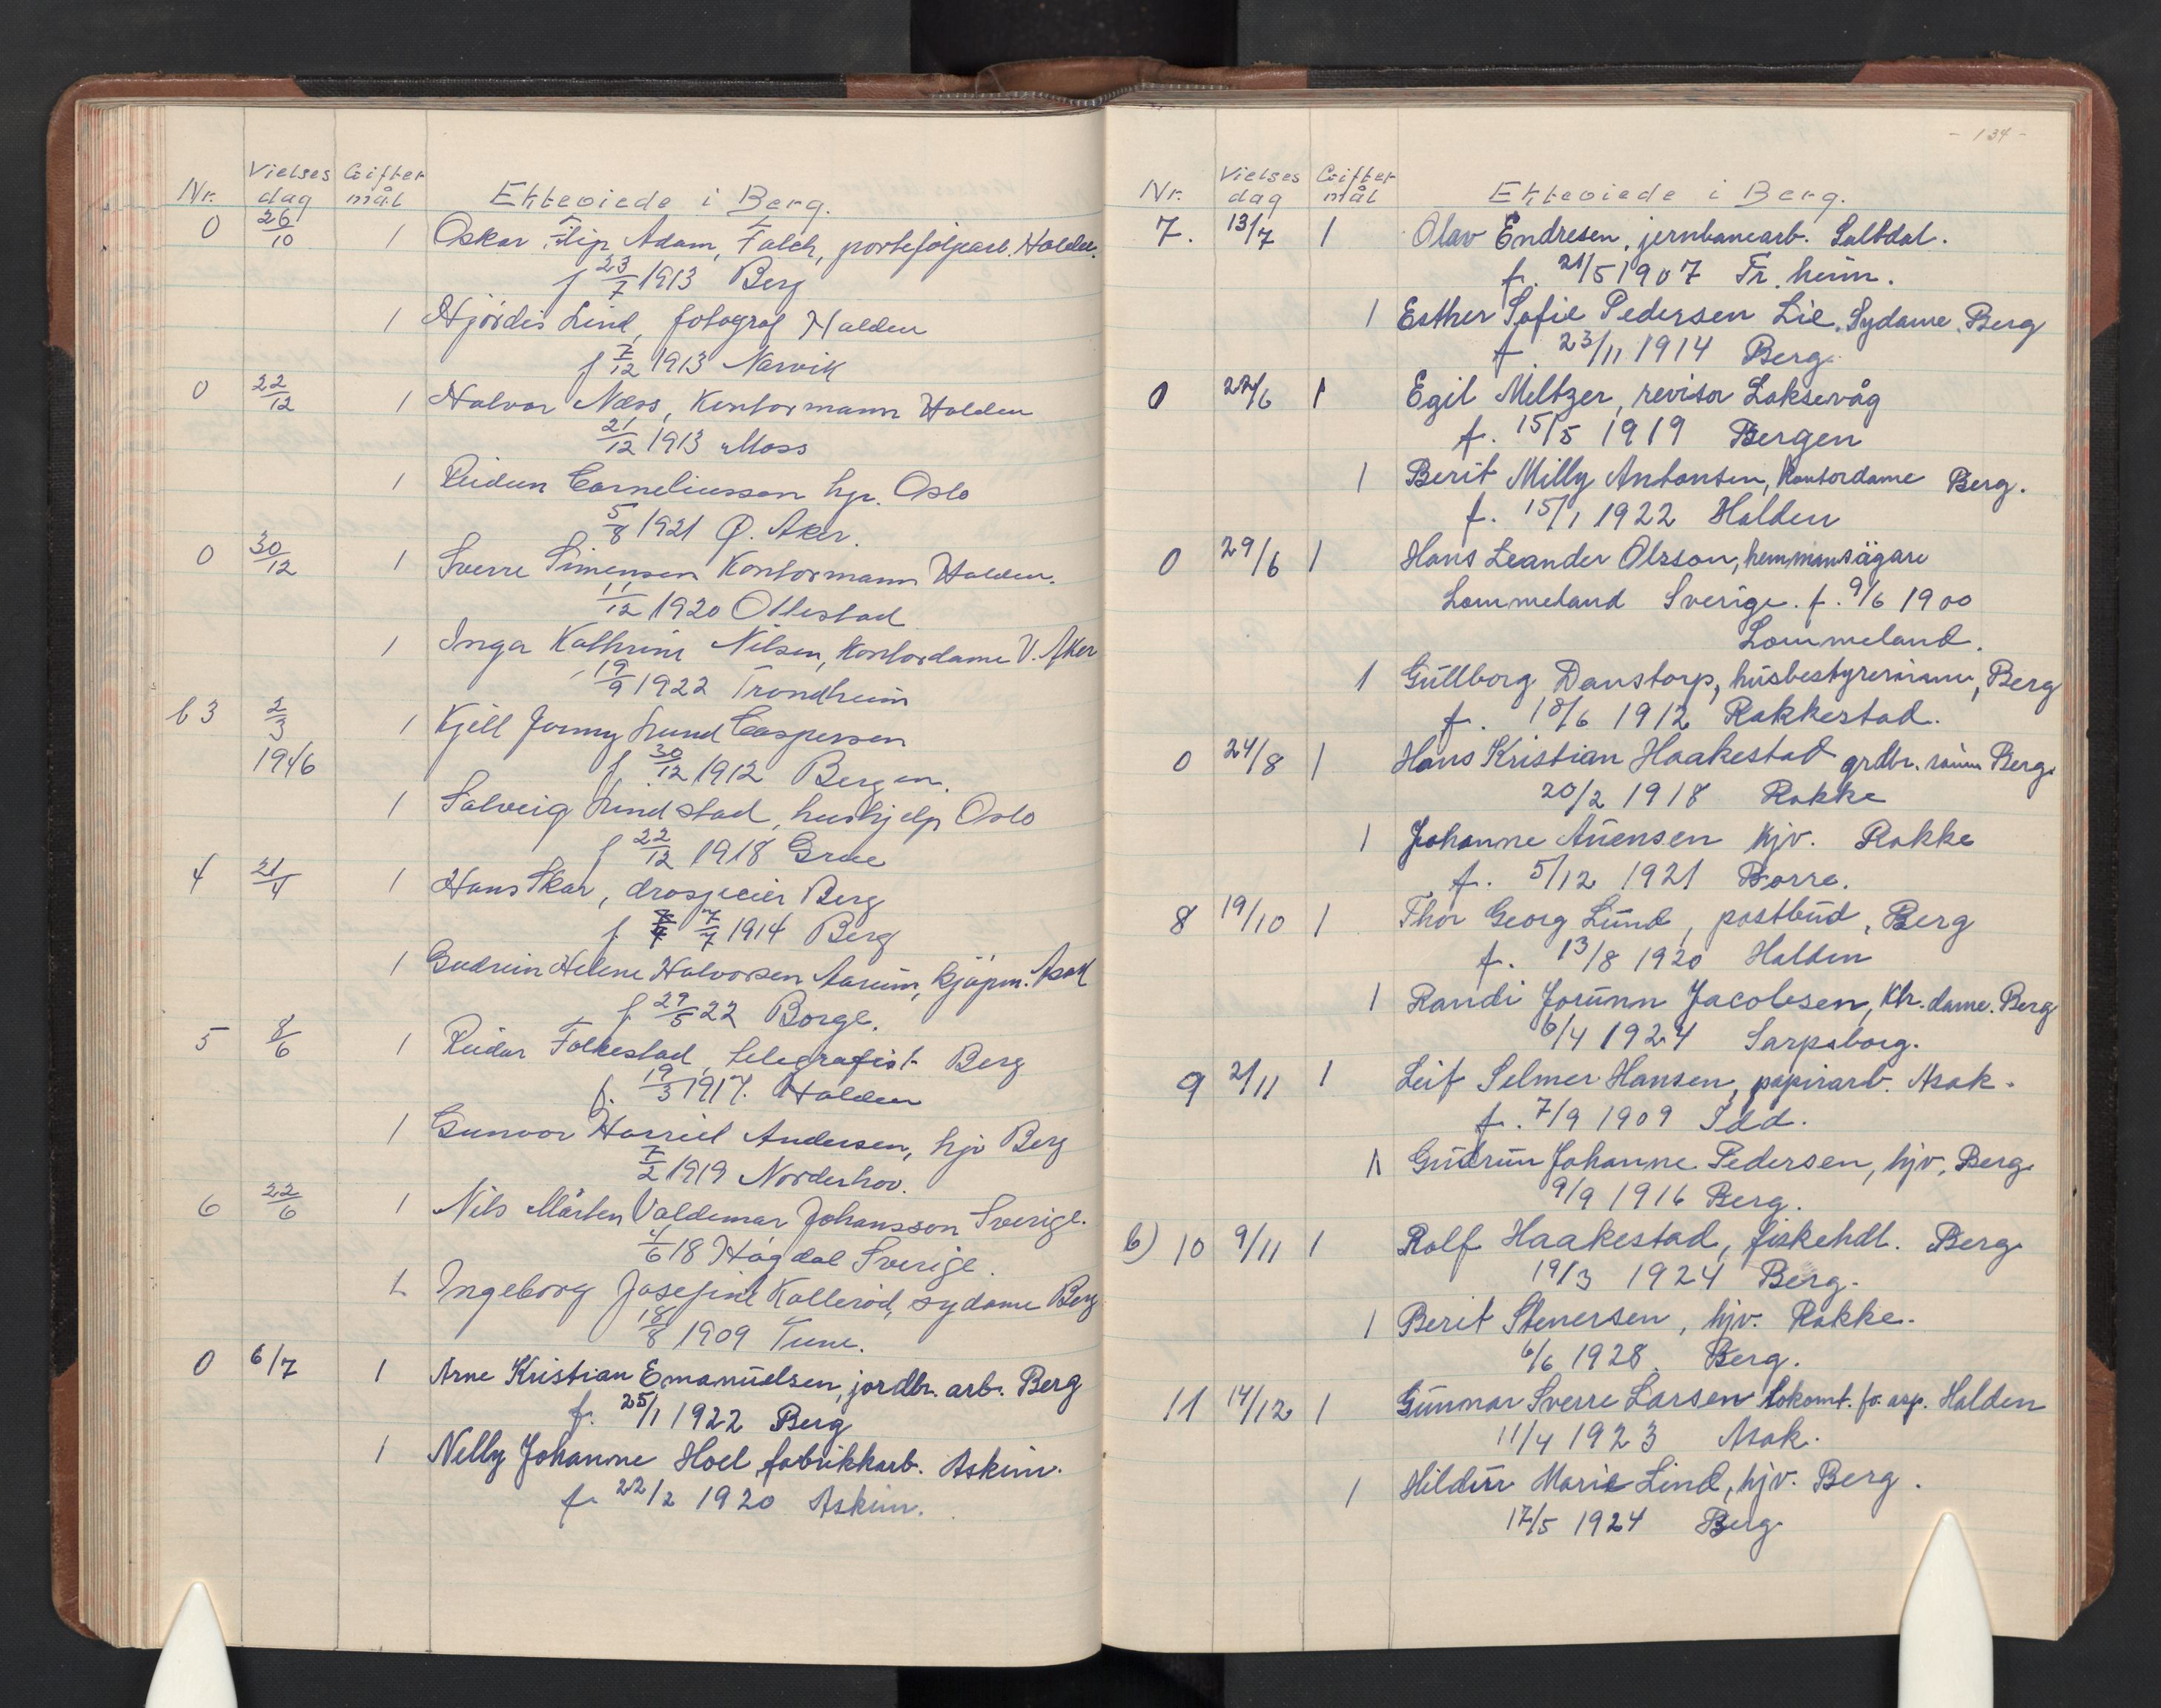 Nr. Vielses dag Gifter mål Ekteviede i Berg.
0 26/10 1 Oskar Filip Adam Falch, porteføljearb. Halden.
f 23/7 1913 Berg
1 Hjördis Lind, fotograf Halden
f 7/12 1913 Narvik
0 22/12 1 Halvor Næss, Kontormann Halden
21/12 1913 Moss
1 Reidun Corneliussen hjv. Oslo
5/8 1921 Ø. Aker.
0 30/12 1 Sverre Simensen Kontormann Halden.
11/12 1920 Ottestad
1 Inga Kathrine Nilsen, Kontordame V. Aker
19/9 1922 Trondheim
b 3 2/3 1 Kjell Jonny Lund Caspersen
1946 f. 30/12 1912 Bergen.
1 Solveig Lindstad, hushjelp Oslo
f 22/12 1918 Grue
4 21/4 1 Hans Skar, drosjeeier Berg
f 7/7 1914 Berg
1 Gudrun Helene Halvorsen Aarum, kjøpm. Asak
f 29/5 22 Borge.
5 8/6 1 Reidar Folkestad, telegrafist Berg
f. 19/3 1917. Halden
1 Gunvor Harriet Andersen, hjv Berg
7/2 1919 Norderhov.
6 22/6 1 Nils Mårten Valdemar Johansson Sverige.
4/6 18 Högdal Sverige.
1 Ingeborg Josefine Kallerød, sydame Berg
18/8 1909 Tune.
0 6/7 1 Arne Kristian Emanuelsen, jordbr. arb. Berg
f. 25/1 1922 Berg
1 Nelly Johanne Hoel fabrikkarb. Askim.
f. 22/2 1920 Askim.
- 134 -
Nr. Vielses dag Gifter mål Ekteviede i Berg.
7. 13/7 1 Olav Endresen, jernbanearb. Saltdal.
f. 21/5 1907 Tr.heim.
1 Esther Sofie Pedersen Lie, Sydame, Berg
f. 23/11 1914 Berg.
0 22/6 1 Egil Meltzer, revisor Laksevåg
f. 15/5 1919 Bergen
1 Berit Milly Antonsen, Kontordame Berg.
f. 15/1 1922 Halden
0 29/6 1 Hans Leander Olsson, hemmansägare
Lommeland Sverige. f. 9/6 1900
Lommeland.
1 Gullborg Danstorp, husbestyrerinne, Berg
f. 18/6 1912 Rakkestad.
0 24/8 1 Hans Kristian Haakestad grdbr. sønn Berg.
20/2 1918 Rokke
1 Johanne Auensen hjv. Rokke
f. 5/12 1921 Borre.
8 19/10 1 Thor Georg Lund, postbud, Berg
f. 13/8 1920 Halden
1 Randi Jorunn Jacobsen, Ktr. dame. Berg
6/4 1924 Sarpsborg.
9 2/11 1 Leif Selmer Hansen, papirarb. Asak.
f. 7/9 1909 Idd.
1 Gudrun Johanne Pedersen, hjv, Berg.
9/9 1916 Berg.
b) 10 9/11 1 Rolf Haakestad, fiskehdl. Berg
19/3 1924 Berg.
1 Berit Stenersen, hjv. Rokke.
6/6 1928. Berg.
11 14/12 1 Gunnar Sverre Larsen Lokomt. fø. asp. Halden
11/4 1923 Asak.
1 Hildur Marie Lind, hjv. Berg.
17/5 1924 Berg